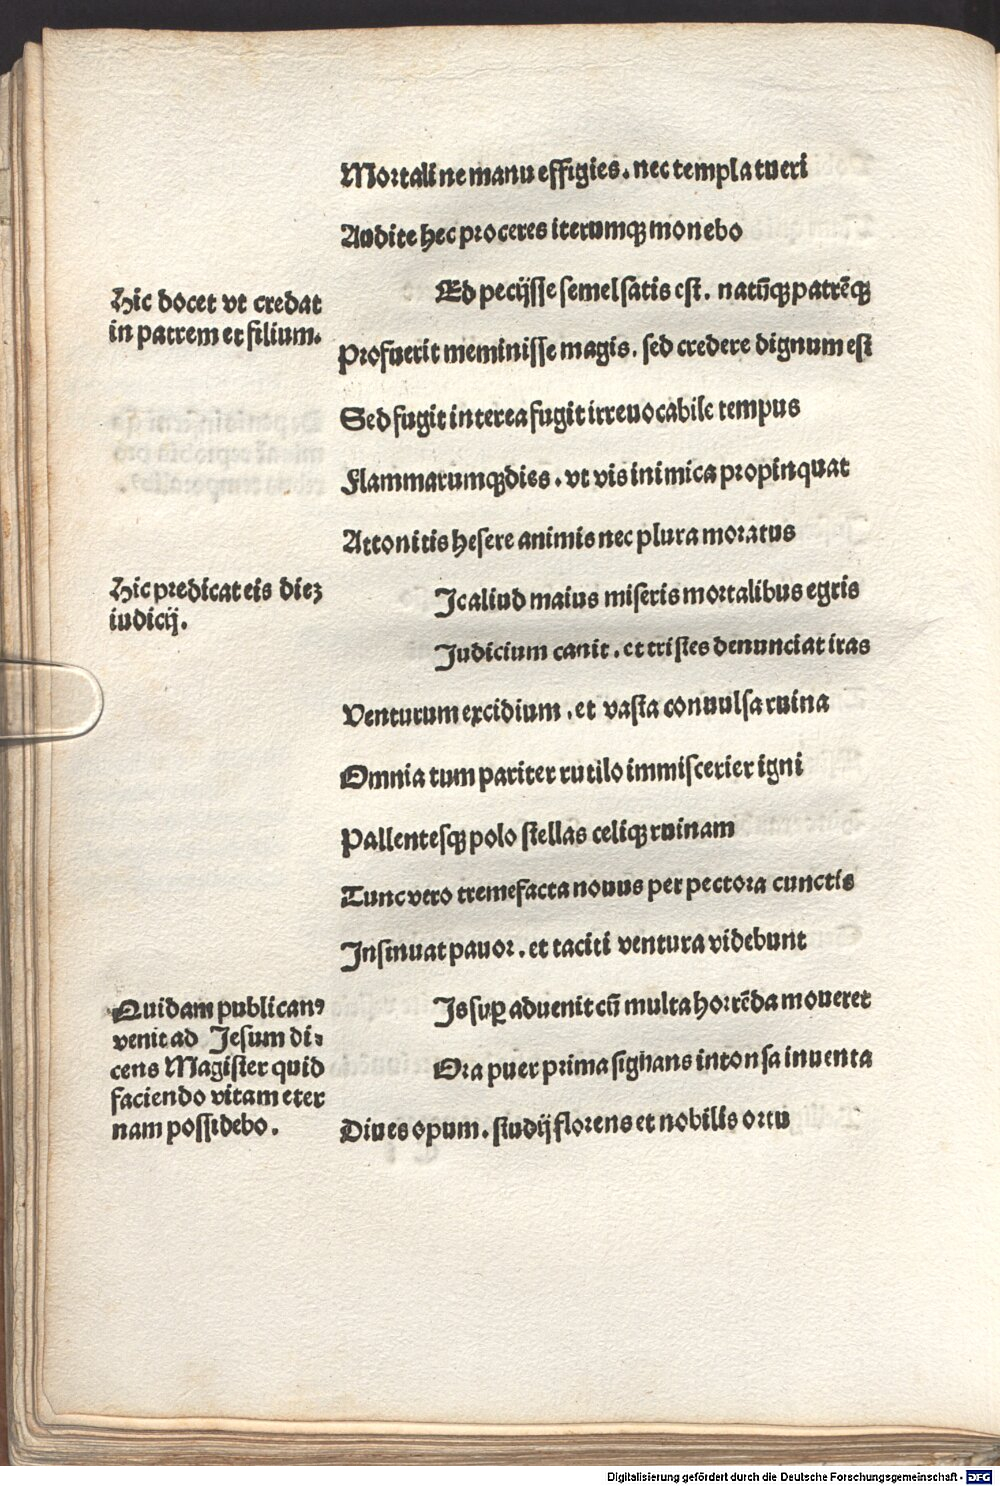 Mortaline manu effigies. nec templa tueri
Audite hec proceres iterumqꝫ monebo
Hic docet vt credat
in patrem et filium.
Ed pecijsse semel satis est. natūqꝫ patrēqꝫ
Profuerit meminisse magis. sed credere dignum est
Sed fugit interea fugit irreuocabile tempus
Flammarumqꝫ dies. vt vis inimica propinquat
Attonitis hesere animis nec plura moratus
Hic predicat eis dieʒ
iudicij.
Ic aliud maius miseris mortalibus egris
Judicium canit. et tristes denunciat iras
Venturum excidium. et vasta conuulsa ruina
Omnia tum pariter rutilo immiscerier igni
Pallentesqꝫ polo stellas celiqꝫ ruinam
Tunc vero tremefacta nouus per pectora cunctis
Insinuat pauor. et taciti ventura videbunt
Quidam publicanꝰ
venit ad Jesum di⸗
cens Magister quid
faciendo vitam eter
nam possidebo.
Is suꝑ aduenit cū multa horrēda moueret
Ora puer prima signans intonsa inuenta
Diues opum. studij florens et nobilis ortu
Digitalisierung gefördert durch die Deutsche Forschungsgemeinschaft - DFG